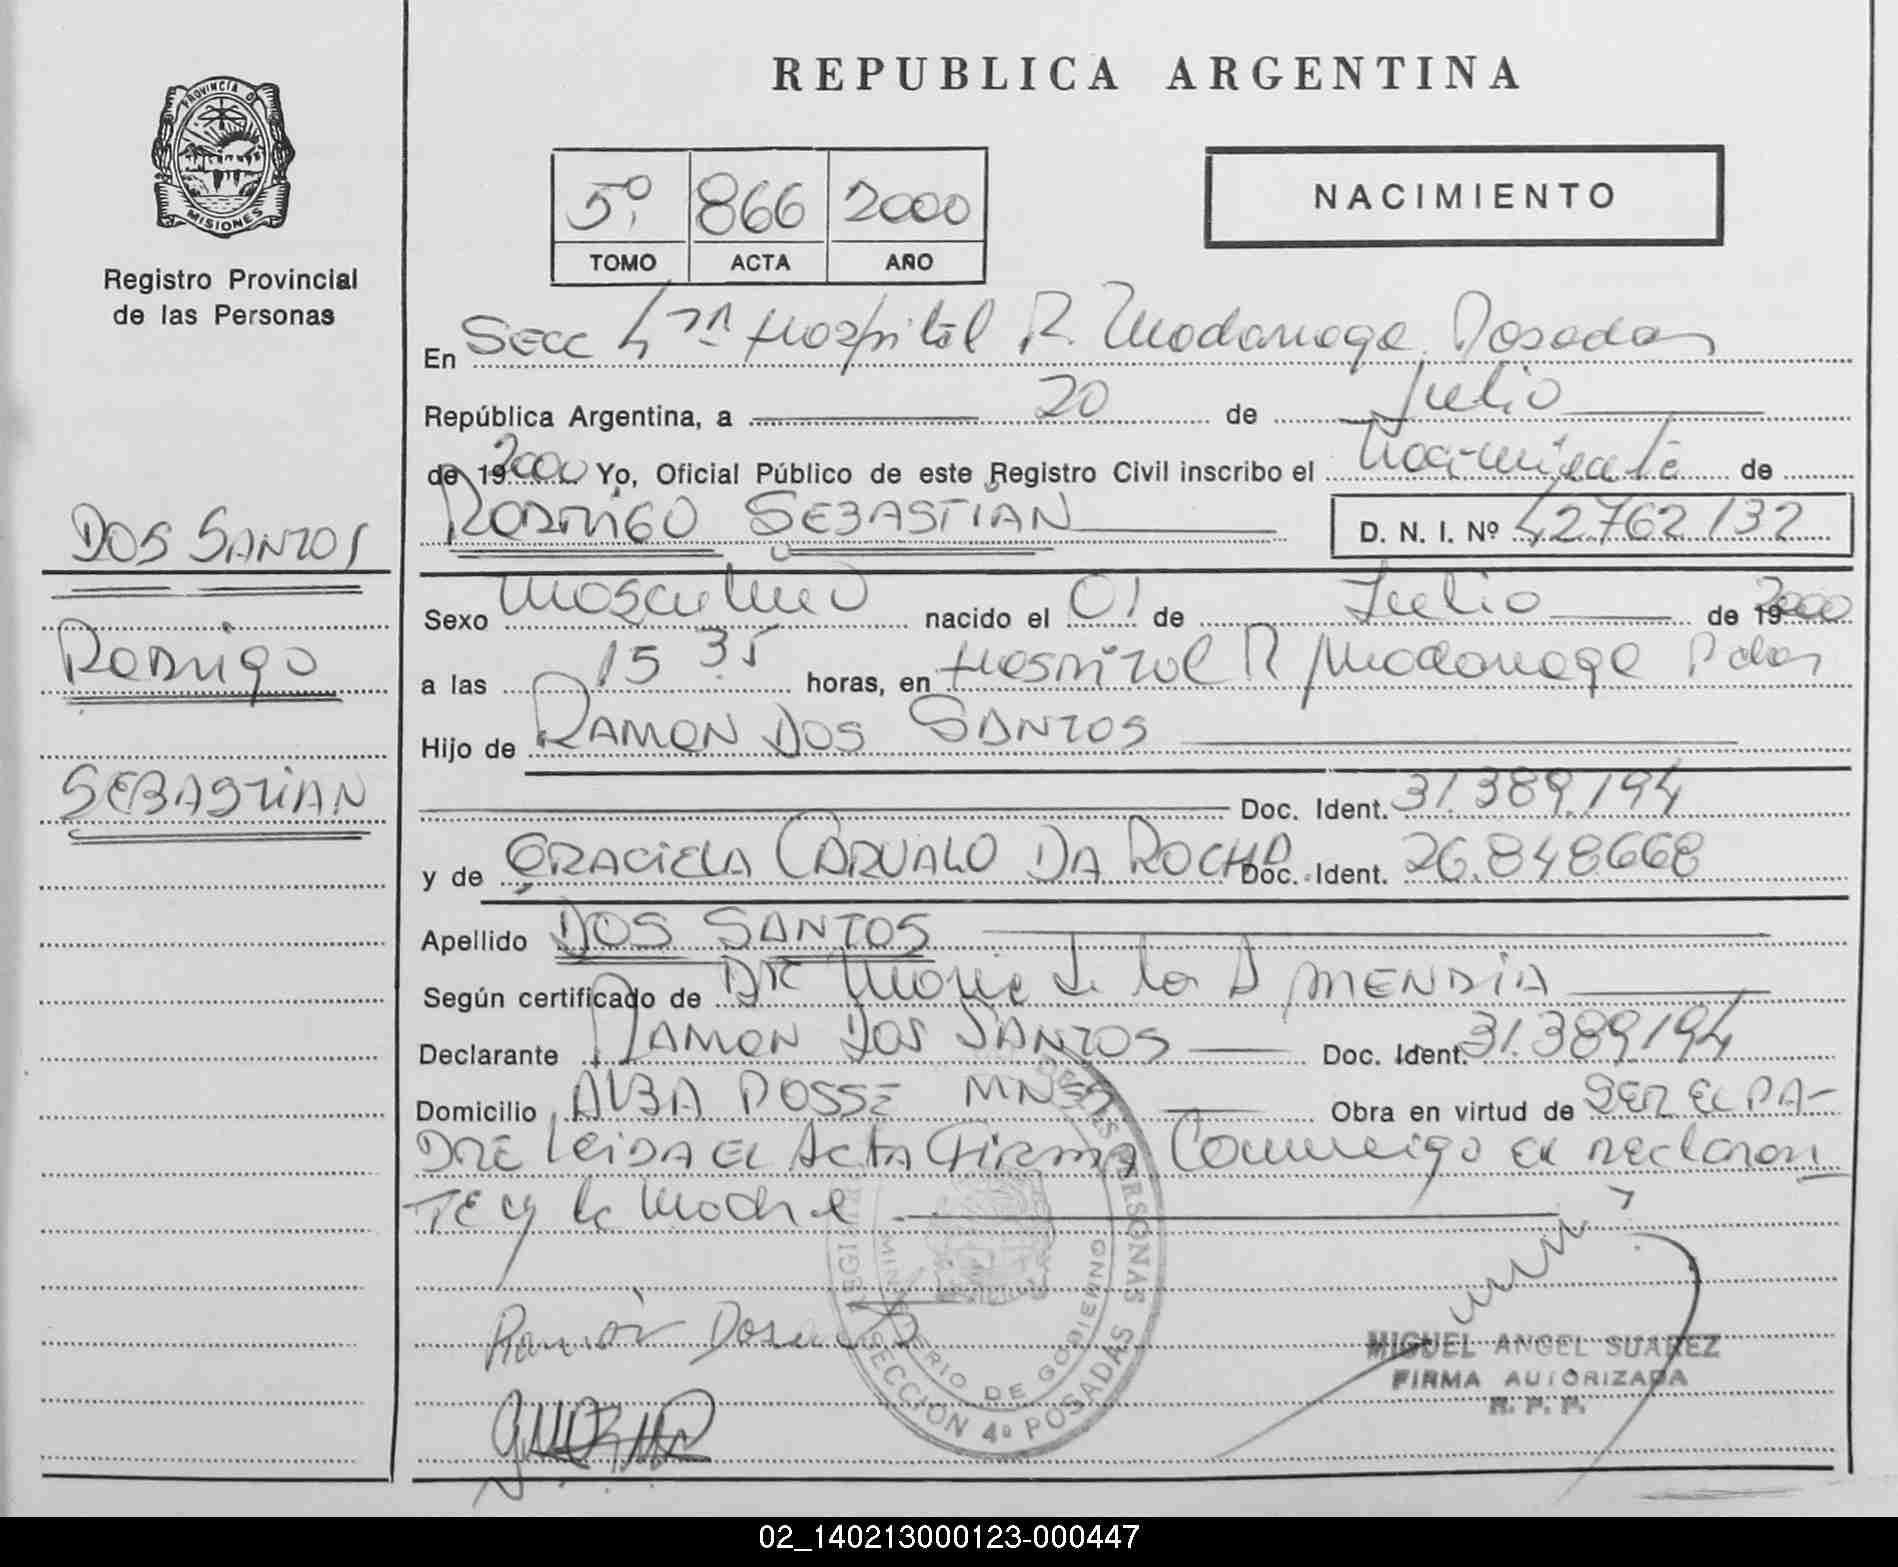 PROVINCIA DE
MISIONES
Registro Provincial
de las Personas
DOS SANTOS
Rodrigo
SEBASTIAN
REPUBLICA ARGENTINA
5º 866 2000
TOMO ACTA AÑO
NACIMIENTO
En Secc 4ta Hospital R. Madariaga Posadas
República Argentina, a 20 de Julio
de 192000 Yo, Oficial Público de este Registro Civil inscribo el Nacimiento de
RODRIGO SEBASTIAN D. N. I. Nº 42762132
Sexo Masculino nacido el 01 de Julio de 192000
a las 15 35 horas, en Hospital R Madariaga Pdas
Hijo de RAMON DOS SANTOS
Doc. Ident. 31.389.194
y de GRACIELA CARVALO DA ROCHA Doc. Ident. 26.848668
Apellido DOS SANTOS
Según certificado de DR MENDIA
Declarante RAMON DOS SANTOS Doc. Ident. 31.389194
Domicilio ALBA POSSE MNES Obra en virtud de SER EL PA-
DRE LEIDA EL ACTA FIRMA Conmigo EL DECLARAN
TE y la Madre
REGISTRO DE LAS PERSONAS
MINISTERIO DE GOBIERNO
SECCION 4º POSADAS
Ramón Dos
MIGUEL ANGEL SUAREZ
FIRMA AUTORIZADA
R. P. P.
02_140213000123-000447